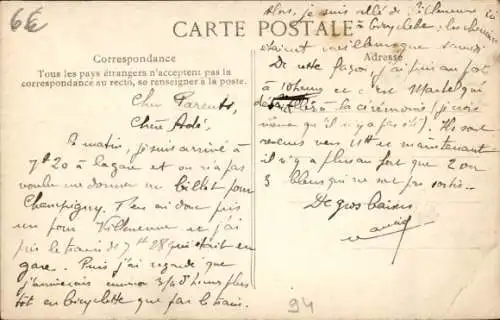 6€
CARTE POSTALE
Correspondance
Tous les pays étrangers n'acceptent pas la
correspondance au recto, se renseigner à la poste.
Adresse
Cher Parents,
Chère Adé,
matin, je suis arrivé à
7h 20 à la gare et on n'a pas
voulu me donner un billet pour
Champigny. J'en ai donc pris
un pour Villeneuve et j'ai
pris le train de 7h 28 qui était en
gare. Puis j'ai regardé que
j'arriverais environ 3/4 d'heure plus
tôt en bicyclette que par le train.
Alors, je suis allé de Villeneuve ici
à bicyclette, les chemins
étaient meilleurs que samedi
De cette façon, j'ai pu au fort
à 10 heures et c'est Martel qui
la cérémonie (je crois
même qu'il n'y a pas été). Ils sont
revenus vers 11h et maintenant
il n'y a plus au fort que 2 ou
3 bleus qui ne sont pas sortis.
De gros baisers
94